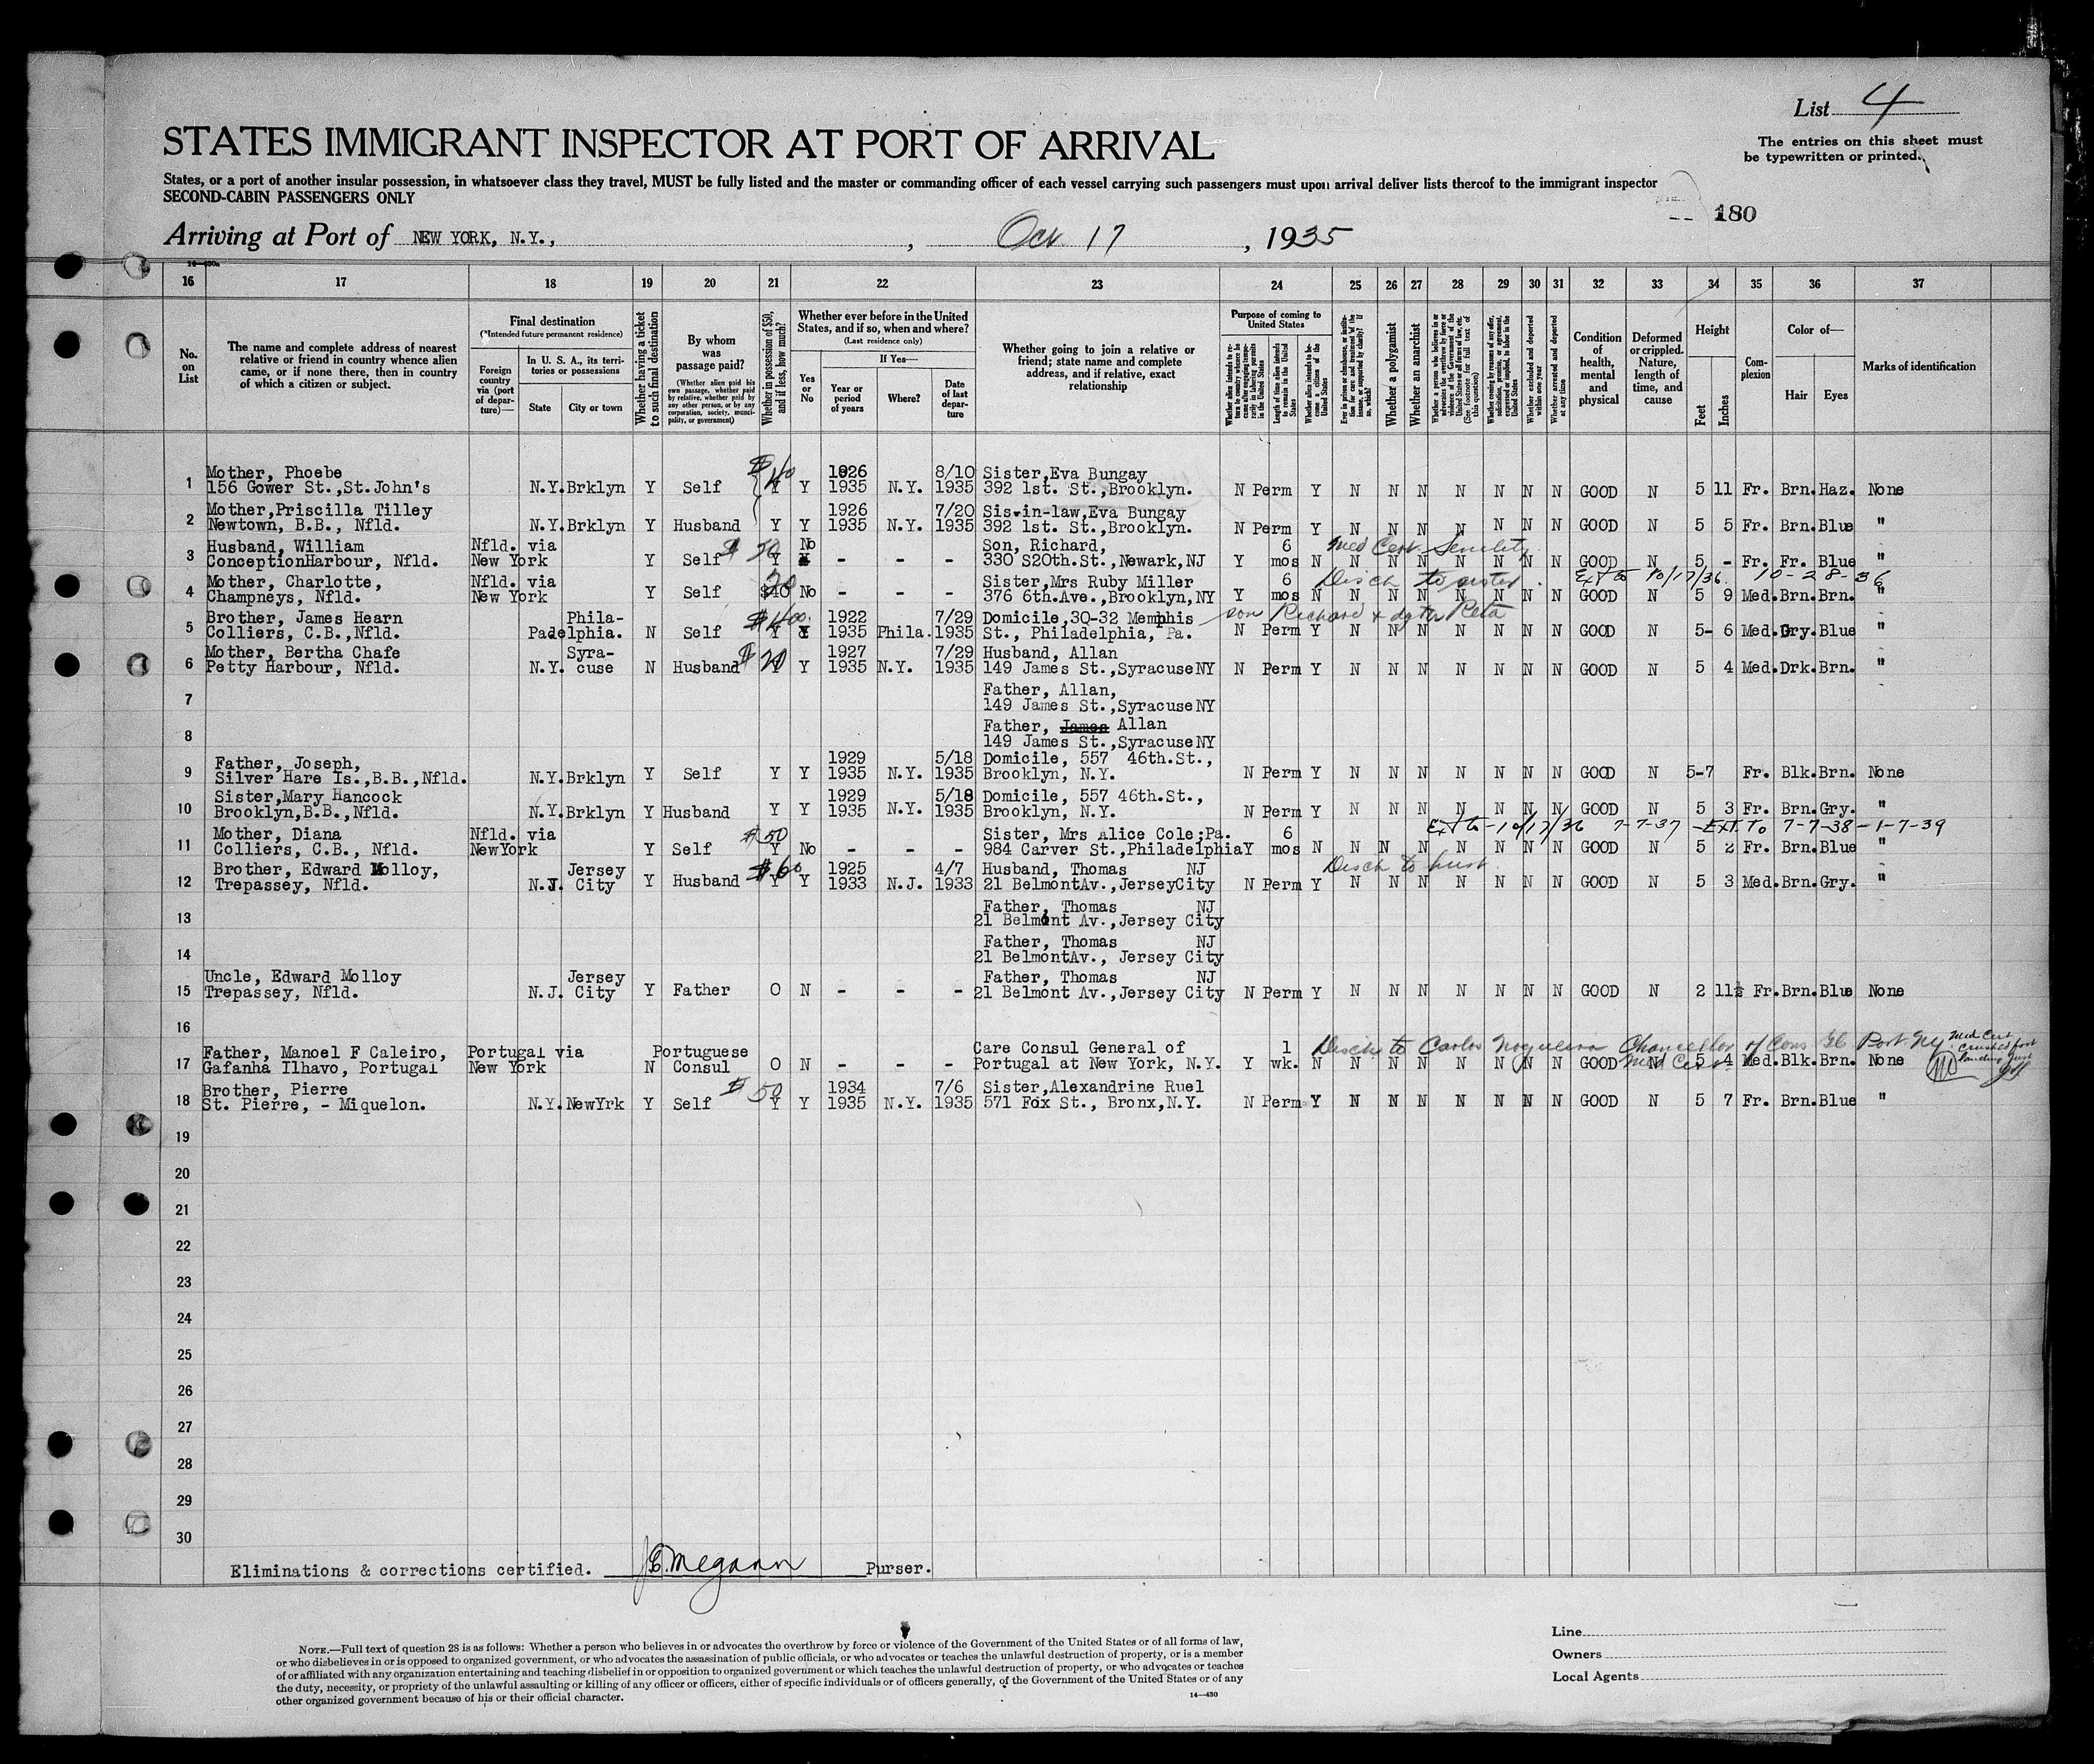 List 4
The entries on this sheet must
be typewritten or printed.
STATES IMMIGRANT INSPECTOR AT PORT OF ARRIVAL
States, or a port of another insular possession, in whatsoever class they travel, MUST be fully listed and the master or commanding officer of each vessel carrying such passengers must upon arrival deliver lists thereof to the immigrant inspector
SECOND-CABIN PASSENGERS ONLY
180
Arriving at Port of NEW YORK, N.Y., , Oct 17 , 1935
16 17 18 19 20 21 22 23 24 25 26 27 28 29 30 31 32 33 34 35 36 37
No. on List
The name and complete address of nearest
relative or friend in country whence alien
came, or if none there, then in country
of which a citizen or subject.
Final destination
(*Intended future permanent residence)
Foreign country via (port of departure)—
In U. S. A., its territories or possessions
State
City or town
Whether having a ticket to such final destination
By whom was passage paid?
(Whether alien paid his own passage, whether paid by relative, whether paid by any other person, or by any corporation, society, municipality, or government)
Whether in possession of $50, and if less, how much?
Whether ever before in the United States, and if so, when and where?
(Last residence only)
Yes or No
If Yes—
Year or period of years
Where?
Date of last departure
Whether going to join a relative or
friend; state name and complete
address, and if relative, exact
relationship
Purpose of coming to United States
Length of time alien intends to remain in the United States
Whether alien intends to become a citizen of the United States
Whether a polygamist
Whether an anarchist
Whether excluded and deported within one year
Whether arrested and deported at any time
Condition of health, mental and physical
Deformed or crippled. Nature, length of time, and cause
Height
Feet Inches
Complexion
Color of—
Hair Eyes
Marks of identification
Mother, Phoebe $40 1926 8/10 Sister,Eva Bungay
1 156 Gower St.,St.John's N.Y. Brklyn Y Self Y Y 1935 N.Y. 1935 392 1st. St.,Brooklyn. N Perm Y N N N N N N N GOOD N 5 11 Fr. Brn. Haz. None
Mother,Priscilla Tilley 1926 7/20 Sis-in-law,Eva Bungay
2 Newtown, B.B., Nfld. N.Y. Brklyn Y Husband Y Y 1935 N.Y. 1935 392 1st. St.,Brooklyn. N Perm Y N N N N N N N GOOD N 5 5 Fr. Brn. Blue "
Husband, William Nfld. via $50 No Son, Richard, 6 Med Cert Senility
3 ConceptionHarbour, Nfld. New York Y Self Y - - - 330 S20th.St.,Newark,NJ Y mos N N N N N N N N GOOD N 5 - Fr. Fr. Blue "
Mother, Charlotte, Nfld. via 20 Sister,Mrs Ruby Miller 6 Disch to sister. Ext to 10/17/36. 10-28-36
4 Champneys, Nfld. New York Y Self $40 No - - - 376 6th.Ave.,Brooklyn,NY Y mos N N N N N N N N GOOD N 5 9 Med. Brn. Brn. "
Brother, James Hearn Phila- $400. 1922 7/29 Domicile,30-32 Memphis son Richard + dghtr Reta
5 Colliers, C.B.,Nfld. Pa delphia. N Self Y Y 1935 Phila. 1935 St., Philadelphia, Pa. N Perm Y N N N N N N N GOOD N 5- 6 Med. Gry. Blue "
Mother, Bertha Chafe Syra- $20 1927 7/29 Husband, Allan
6 Petty Harbour, Nfld. N.Y. cuse N Husband Y Y 1935 N.Y. 1935 149 James St.,Syracuse NY N Perm Y N N N N N N N GOOD N 5 4 Med. Drk. Brn. "
Father, Allan,
7 149 James St.,Syracuse NY
Father, James Allan
8 149 James St.,Syracuse NY
Father, Joseph, 1929 5/18 Domicile, 557 46th.St.,
9 Silver Hare Is.,B.B.,Nfld. N.Y. Brklyn Y Self Y Y 1935 N.Y. 1935 Brooklyn, N.Y. N Perm Y N N N N N N N GOOD N 5-7 Fr. Blk. Brn. None
Sister,Mary Hancock 1929 5/18 Domicile, 557 46th.St.,
10 Brooklyn,B.B.,Nfld. N.Y. Brklyn Y Husband Y Y 1935 N.Y. 1935 Brooklyn, N.Y. N Perm Y N N N N N N N GOOD N 5 3 Fr. Brn. Gry. "
Mother, Diana Nfld. via $50 Sister, Mrs Alice Cole;Pa. 6 Ext to - 10/17/36 7-7-37 - EXT. To 7-7-38 - 1-7-39
11 Colliers, C.B., Nfld. NewYork Y Self Y No - - - 984 Carver St.,Philadelphia Y mos N N N N N N N N GOOD N 5 2 Fr. Brn. Blue "
Brother, Edward Molloy, Jersey $60 1925 4/7 Husband, Thomas NJ Disch to husb.
12 Trepassey, Nfld. N.J. City Y Husband Y Y 1933 N.J. 1933 21 BelmontAv.,JerseyCity N Perm Y N N N N N N N GOOD N 5 3 Med. Brn. Gry. "
Father, Thomas NJ
13 21 Belmont Av.,Jersey City
Father, Thomas NJ
14 21 BelmontAv., Jersey City
Uncle, Edward Molloy Jersey Father, Thomas NJ
15 Trepassey, Nfld. N.J. City Y Father O N - - - 21 Belmont Av.,Jersey City N Perm Y N N N N N N N GOOD N 2 11½ Fr. Brn. Blue None
16
Father, Manoel F Caleiro, Portugal via Portuguese Care Consul General of 1 Disch to Carlos Nogueira Chancellor of Cons Gl Port NY Med Cert crushed foot
17 Gafanha Ilhavo, Portugal New York N Consul O N - - - Portugal at New York, N.Y. Y wk. N N N N N N N N GOOD Med Cert 5 4 Med. Blk. Brn. None
Brother, Pierre $50 1934 7/6 Sister,Alexandrine Ruel
18 St. Pierre, - Miquelon. N.Y. NewYrk Y Self Y Y 1935 N.Y. 1935 571 Fox St., Bronx,N.Y. N Perm Y N N N N N N N GOOD N 5 7 Fr. Brn. Blue "
19
20
21
22
23
24
25
26
27
28
29
30
Eliminations & corrections certified. Purser.
NOTE.—Full text of question 28 is as follows: Whether a person who believes in or advocates the overthrow by force or violence of the Government of the United States or of all forms of law,
or who disbelieves in or is opposed to organized government, or who advocates the assassination of public officials, or who advocates or teaches the unlawful destruction of property, or is a member
of or affiliated with any organization entertaining and teaching disbelief in or opposition to organized government or which teaches the unlawful destruction of property, or who advocates or teaches
the duty, necessity, or propriety of the unlawful assaulting or killing of any officer or officers, either of specific individuals or of officers generally, of the Government of the United States or of any
other organized government because of his or their official character.
14—430
Line
Owners
Local Agents